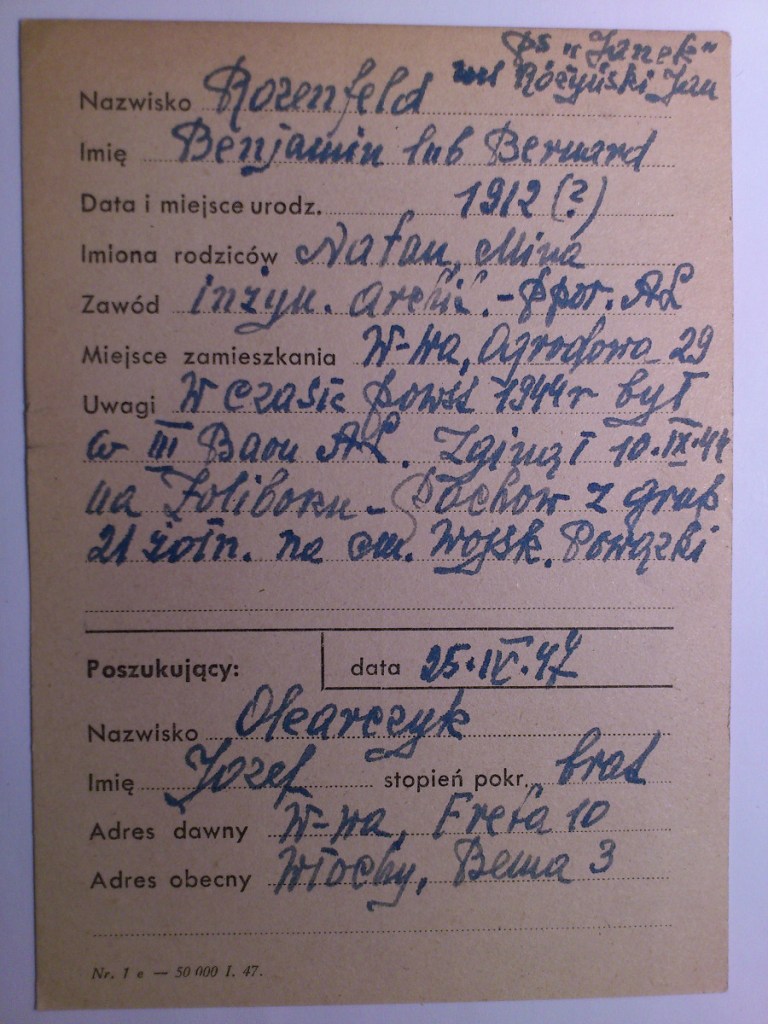 ps „Janek"
Nazwisko Rozenfeld vel Różyński Jan
Imię Benjamin lub Bernard
Data i miejsce urodz. 1912 (?)
Imiona rodziców Natan, Mina
Zawód inżyn. archit. - Ppor. AL
Miejsce zamieszkania W-wa, Ogrodowa 29
Uwagi W czasie powst 1944 r był
w III Baon AL. Zginął 10.IX.44
na Żoliborzu - Pochow z grup
21 żołn. na cm. Wojsk. Powązki
Poszukujący: data 25.IV.47
Nazwisko Olearczyk
Imię Józef stopień pokr. brat
Adres dawny W-wa, Freta 10
Adres obecny Włochy, Bema 3
Nr. 1 e — 50 000 I. 47.